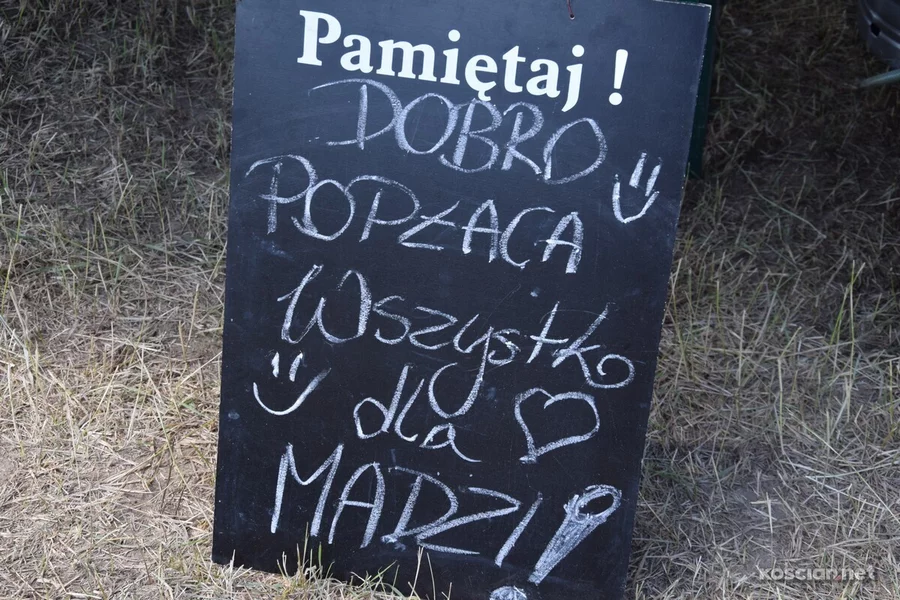 Pamiętaj !
DOBRO
POPŁACA
Wszystko
dla
MADZI!
koscian.net